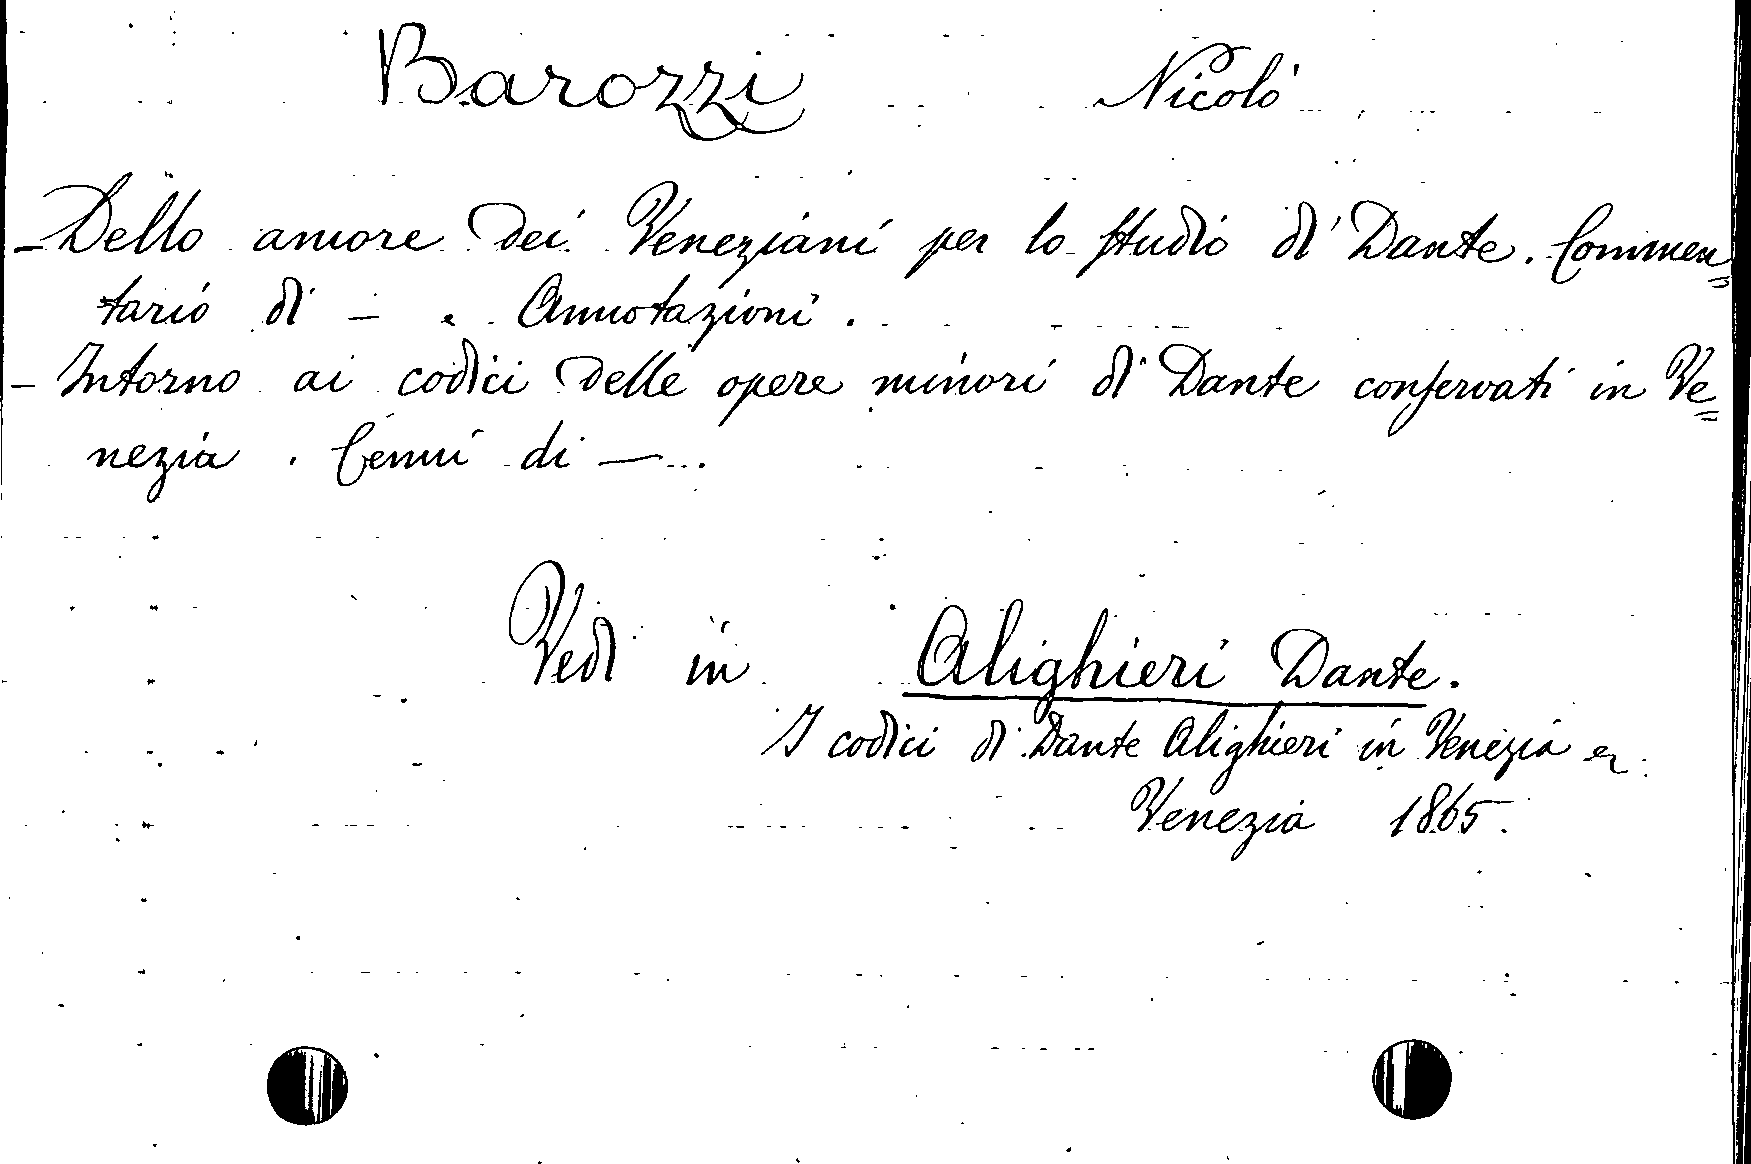 Barozzi Nicolò
- Dello amore dei Veneziani per lo studio di Dante. Commen=
tario di - . Annotazioni.
- Intorno ai codici delle opere minori di Dante conservati in Ve=
nezia. Cenni di -.
Vedi in Alighieri Dante.
I codici di Dante Alighieri in Venezia
Venezia 1865.